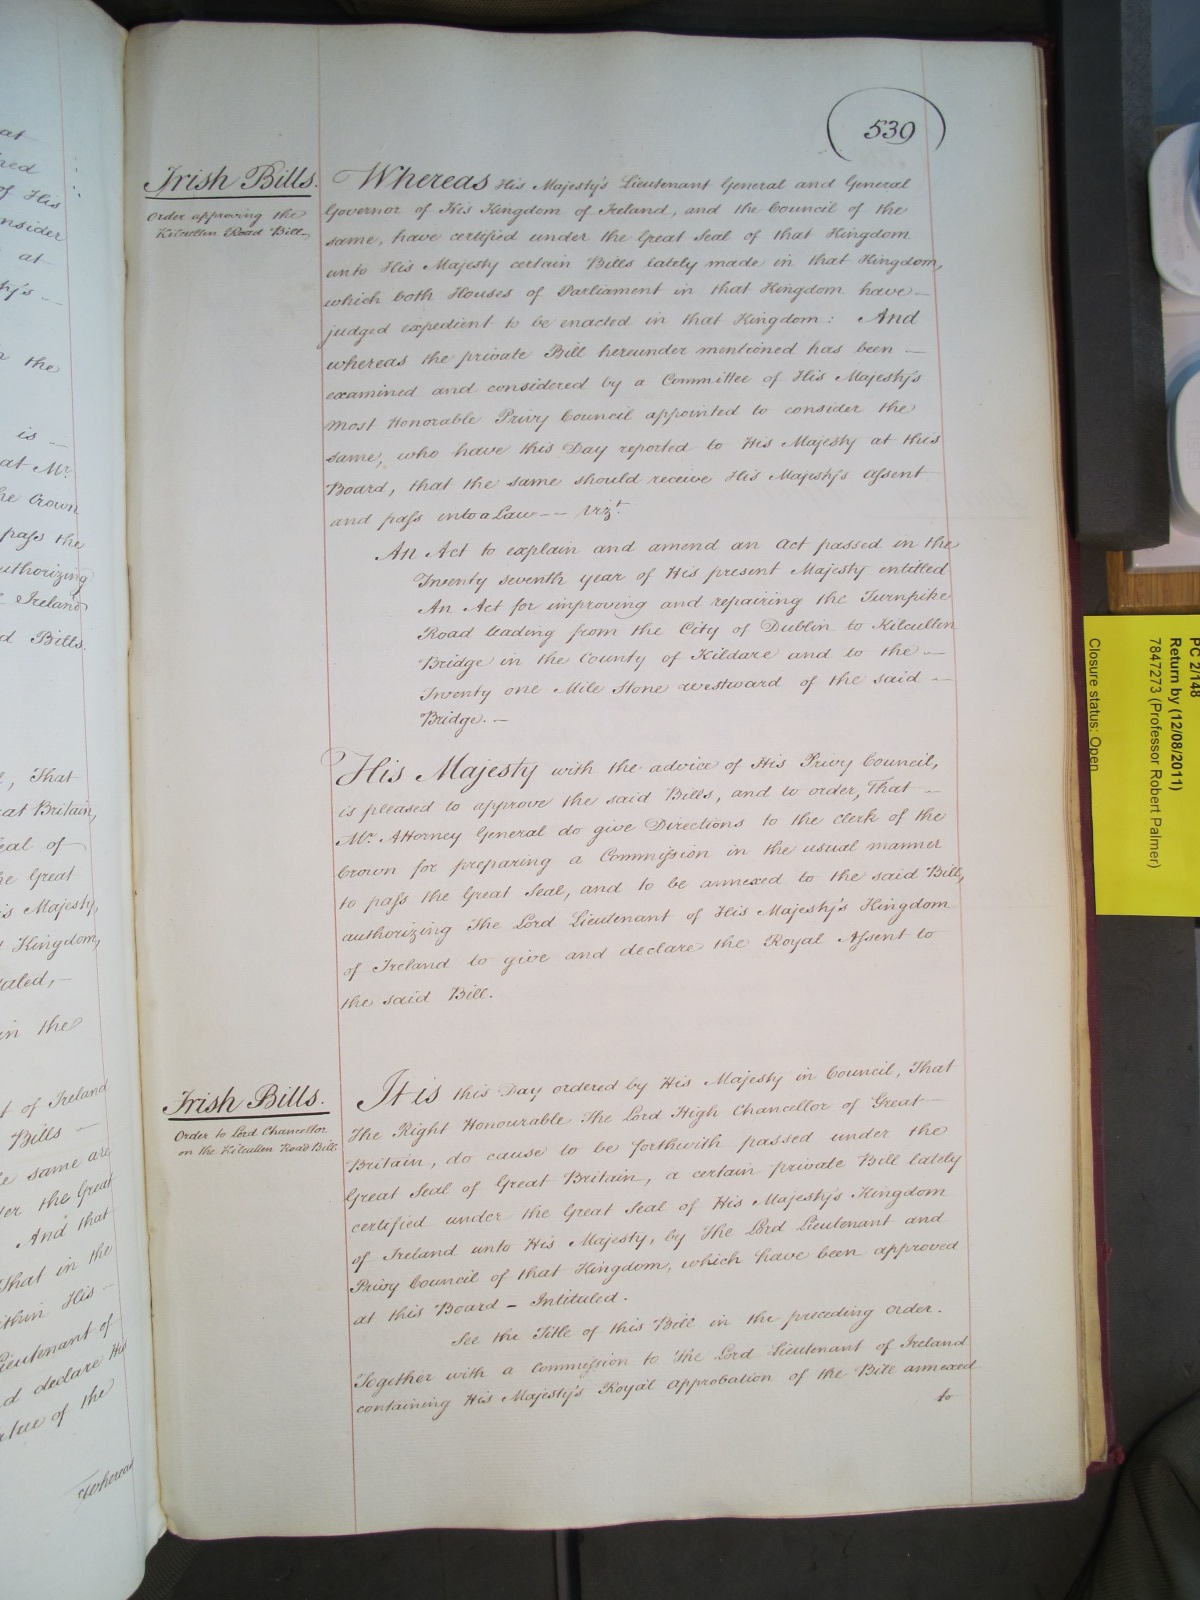 539
Irish Bills.
Order approving the
Kilcullen Road Bill—
Whereas His Majesty's Lieutenant General and General
Governor of His Kingdom of Ireland, and the Council of the
same, have certified under the Great Seal of that Kingdom
unto His Majesty certain Bills lately made in that Kingdom,
which both Houses of Parliament in that Kingdom have —
judged expedient to be enacted in that Kingdom: And
whereas the private Bill hereunder mentioned has been —
examined and considered by a Committee of His Majesty's
most Honorable Privy Council appointed to consider the
same, who have this Day reported to His Majesty at this
Board, that the same should receive His Majesty's Assent
and pass into a Law —— Vizt.
An Act to explain and amend an Act passed in the
Twenty seventh year of His present Majesty entitled
An Act for improving and repairing the Turnpike
Road leading from the City of Dublin to Kilcullen
Bridge in the County of Kildare and to the —
Twenty one Mile Stone westward of the said —
Bridge. —
His Majesty with the advice of His Privy Council,
is pleased to approve the said Bills, and to order, That —
Mr. Attorney General do give Directions to the Clerk of the
Crown for preparing a Commission in the usual manner
to pass the Great Seal, and to be annexed to the said Bill,
authorizing The Lord Lieutenant of His Majesty's Kingdom
of Ireland to give and declare the Royal Assent to
the said Bill.
Irish Bills.
Order to Lord Chancellor
on the Kilcullen Road Bill.
It is this Day ordered by His Majesty in Council, That
The Right Honourable The Lord High Chancellor of Great —
Britain, do cause to be forthwith passed under the
Great Seal of Great Britain, a certain private Bill lately
certified under the Great Seal of His Majesty's Kingdom
of Ireland unto His Majesty, by The Lord Lieutenant and
Privy Council of that Kingdom, which have been approved
at this Board — Intituled.
See the Title of this Bill in the preceding order.
Together with a Commission to The Lord Lieutenant of Ireland
containing His Majesty's Royal Approbation of the Bill annexed
to
at
of His
at
the
is —
at Mr.
he Crown
pass the
Ireland
Bills.
, That
Britain,
of
he Great
Majesty,
Kingdom,
in the
of Ireland
Bills —
same are
the Great
And that
That in the
His —
Lieutenant of
declare His
of the
Whereas
PC 2/148
Return by (12/08/2011)
7847273 (Professor Robert Palmer)
Closure status: Open